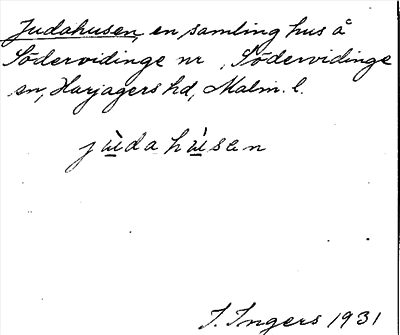 Judahusen, en samling hus å
Södervidinge nr , Södervidinge
sn, Harjagers hd, Malm. l.
jùdahùsen
I. Ingers 1931